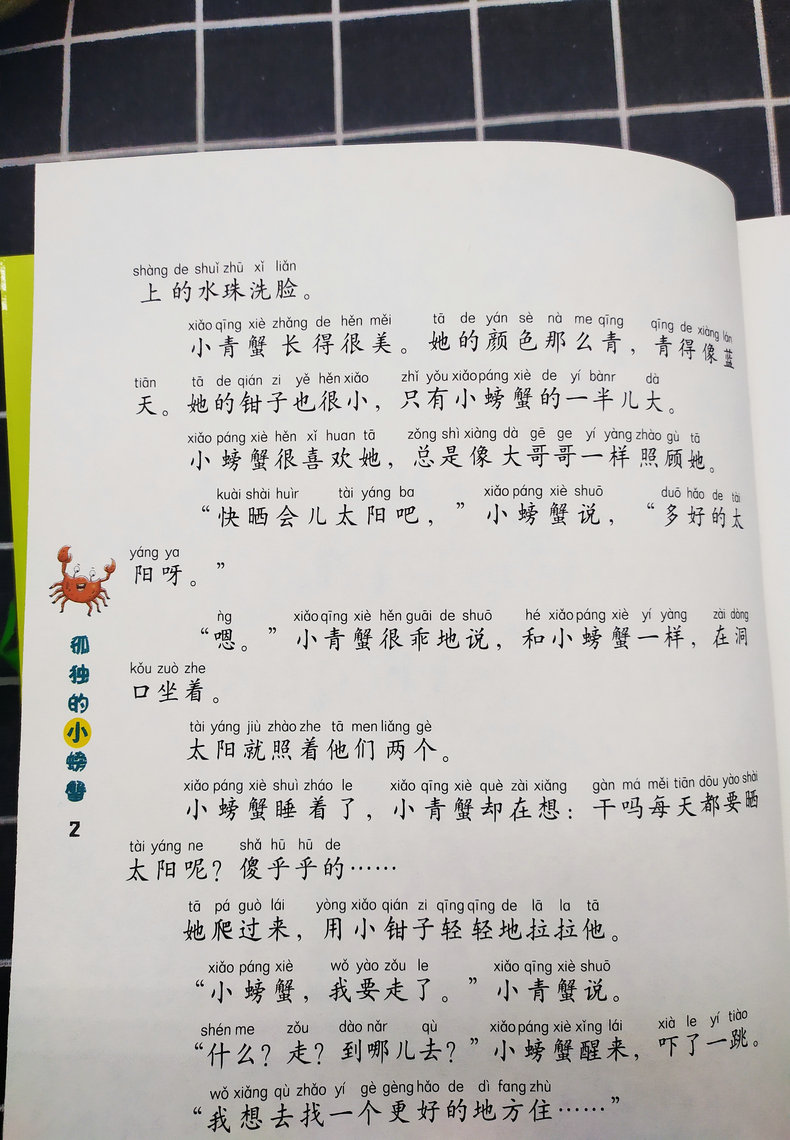 shàng de shuǐ zhū xǐ liǎn
上的水珠洗脸。
xiǎo qīng xiè zhǎng de hěn měi tā de yán sè nà me qīng qīng de xiàng lán
小青蟹长得很美。她的颜色那么青，青得像蓝
tiān tā de qián zi yě hěn xiǎo zhǐ yǒu xiǎo páng xiè de yí bànr dà
天。她的钳子也很小，只有小螃蟹的一半儿大。
xiǎo páng xiè hěn xǐ huan tā zǒng shì xiàng dà gē ge yí yàng zhào gù tā
小螃蟹很喜欢她，总是像大哥哥一样照顾她。
kuài shài huìr tài yáng ba xiǎo páng xiè shuō duō hǎo de tài
“快晒会儿太阳吧，”小螃蟹说，“多好的太
yáng ya
阳呀。”
ǹg xiǎo qīng xiè hěn guāi de shuō hé xiǎo páng xiè yí yàng zài dòng
“嗯。”小青蟹很乖地说，和小螃蟹一样，在洞
kǒu zuò zhe
口坐着。
tài yáng jiù zhào zhe tā men liǎng gè
太阳就照着他们两个。
xiǎo páng xiè shuì zháo le xiǎo qīng xiè què zài xiǎng gàn má měi tiān dōu yào shài
小螃蟹睡着了，小青蟹却在想：干吗每天都要晒
tài yáng ne shǎ hū hū de
太阳呢？傻乎乎的……
tā pá guò lái yòng xiǎo qián zi qīng qīng de lā la tā
她爬过来，用小钳子轻轻地拉拉他。
xiǎo páng xiè wǒ yào zǒu le xiǎo qīng xiè shuō
“小螃蟹，我要走了。”小青蟹说。
shén me zǒu dào nǎr qù xiǎo páng xiè xǐng lái xià le yí tiào
“什么？走？到哪儿去？”小螃蟹醒来，吓了一跳。
wǒ xiǎng qù zhǎo yí gè gèng hǎo de dì fang zhù
“我想去找一个更好的地方住……”
孤独的小螃蟹
2